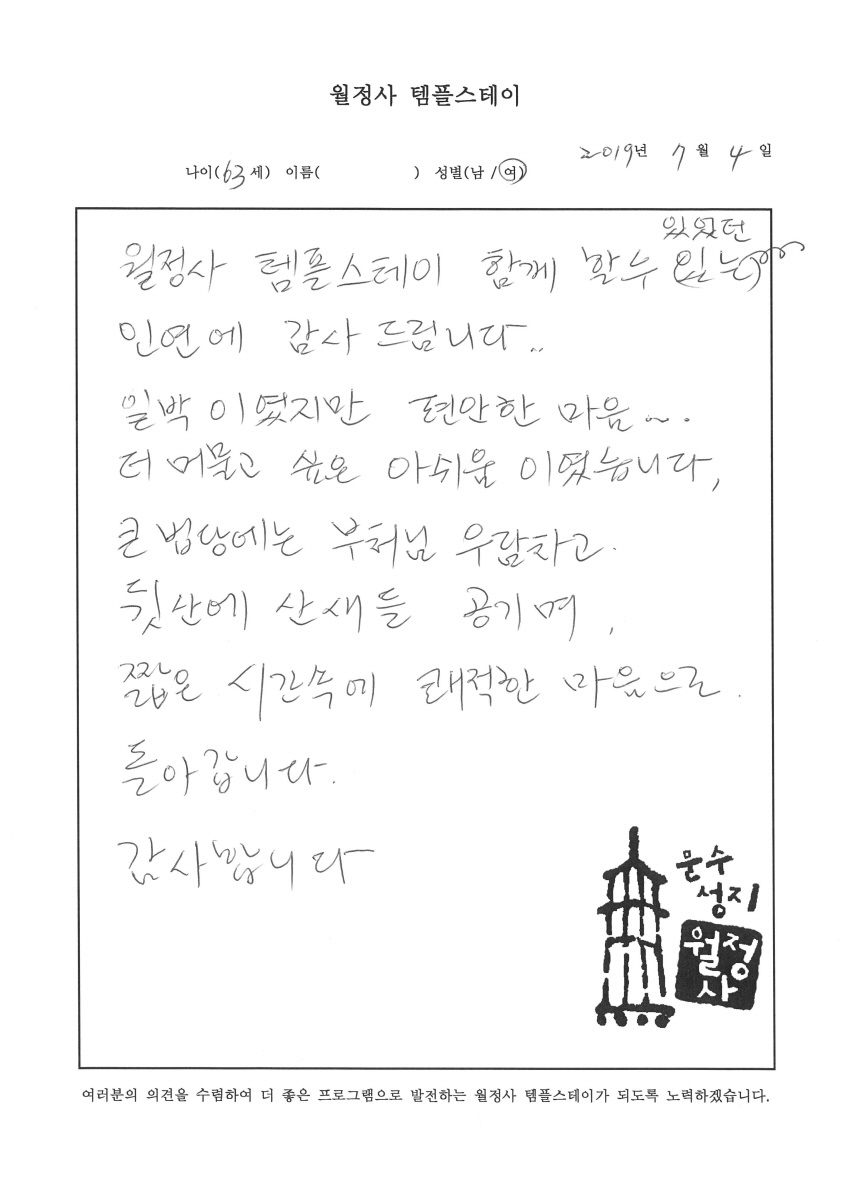 월정사 템플스테이
2019년 7월 4일
나이(63세) 이름( ) 성별(남 / 여)
있었던
월정사 템플스테이 함께 할수 있는
인연에 감사 드립니다..
일박 이였지만 편안한 마음~.
더 머물고 싶은 아쉬움 이였습니다,
큰 법당에는 부처님 우람하고.
뒷산에 산새들 공기며,
짧은 시간속에 쾌적한 마음으로.
돌아갑니다.
감사합니다
문수
성지
월정
사
여러분의 의견을 수렴하여 더 좋은 프로그램으로 발전하는 월정사 템플스테이가 되도록 노력하겠습니다.